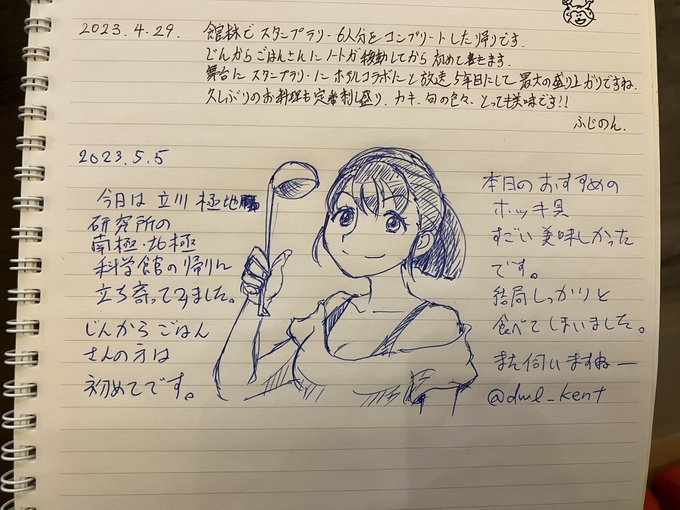 2023.4.29. 館林でスタンプラリー6人分をコンプリートした帰りです。
じんからごはんさんにノートが移動してから初めて書きます。
舞台にスタンプラリーにホテルコラボにと放送5年目にして最大の盛り上がりですね。
久しぶりのお料理も定番刺し盛り、カキ、旬の色々、とっても美味です!!
ふじのん.
2023.5.5
今日は立川極地
研究所の
南極・北極
科学館の帰りに
立ち寄ってみました。
じんからごはん
さんの方は
初めてです。
本日のおすすめの
ホッキ貝
すごい美味しかった
です。
結局しっかりと
食べてしまいました。
また伺いますねー
@dwl_kent